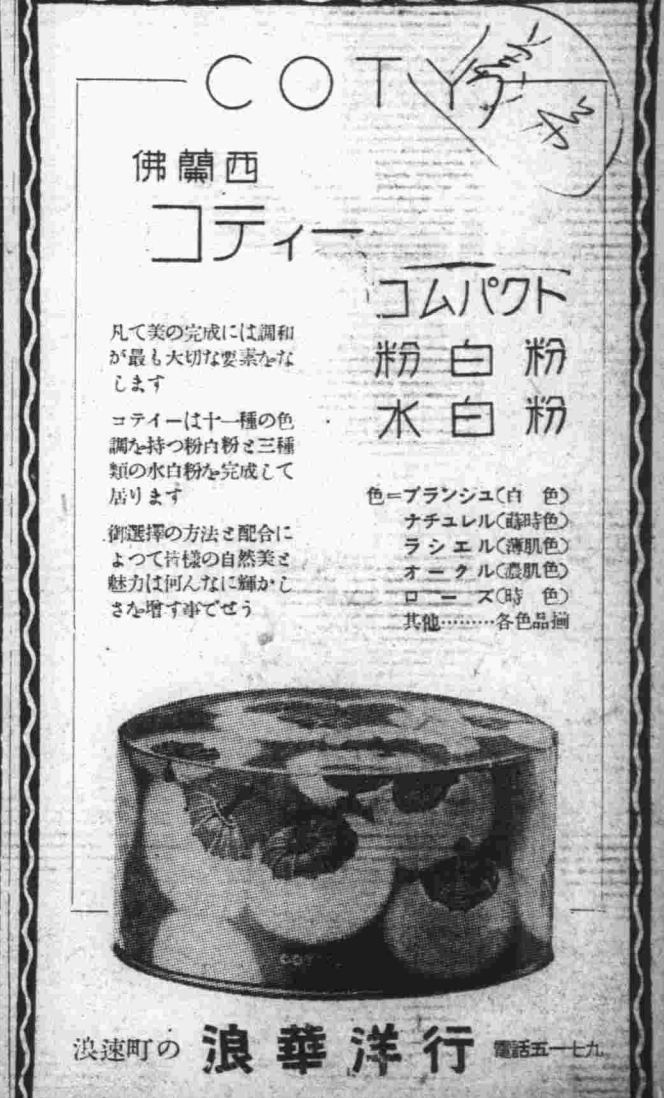 COTY
佛蘭西
コティー
コムパクト
粉白粉
水白粉
凡て美の完成には調和
が最も大切な要素をな
します
コテイーは十一種の色
調を持つ粉白粉と三種
類の水白粉を完成して
居ります
御選擇の方法と配合に
よつて皆様の自然美と
魅力は何んなに輝かし
さを増す事でせう
色=ブランシユ(白 色)
ナチュレル(蒔時色)
ラシエル(薄肌色)
オークル(濃肌色)
ローズ(時 色)
其他………各色品揃
COTY
浪速町の 浪華洋行 電話五一七九